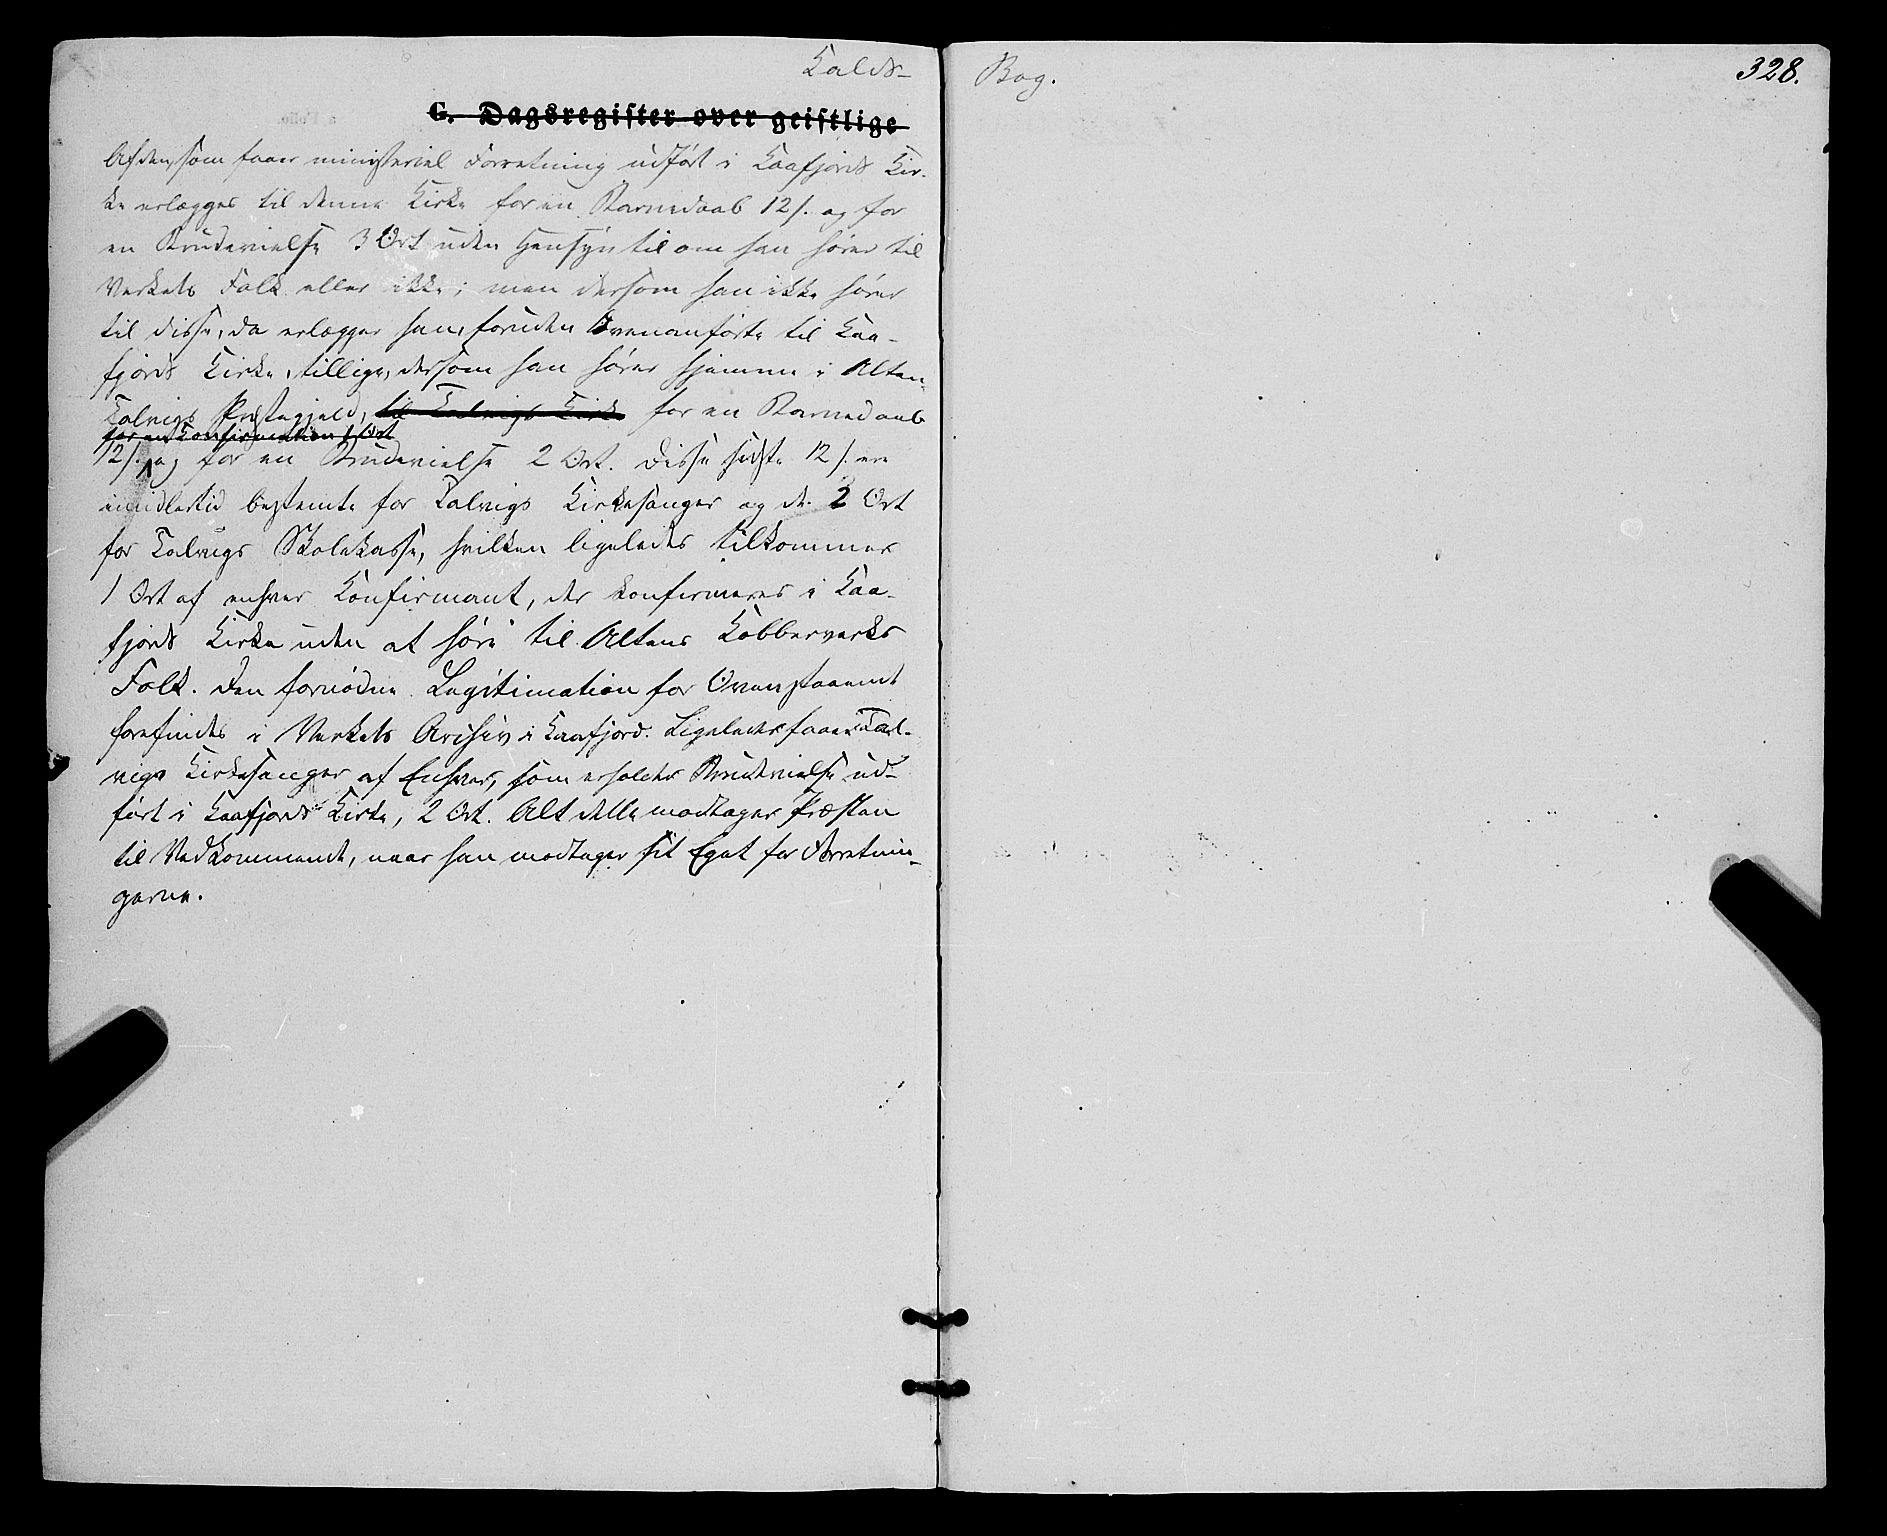 Kalds-
Bog.
328.
G. Dagsregister over geistlige
Af den, som faaer ministeriel Forretning udført i Kaafjords Kir-
ke erlægges til denne Kirke for en Barnedaab 12 s. og for
en Brudevielse 3 Ort uden Hensyn til om han hører til
Verkets Folk eller ikke; men dersom han ikke hører
til disse, da erlægger han, foruden Ovenanførte til Kaa-
fjords Kirke, tillige, dersom han hører hjemme i Alten-
Talvigs Præstegjeld, til Talvigs Kirke for en Barnedaab
for en Konfirmation 1 Ort
12 s. og for en Brudevielse 2 Ort. Disse sidste 12 s. ere
imidlertid bestemte for Talvigs Kirkesanger og de 2 Ort
for Talvigs Skolekasse, hvilken ligeledes tilkommer
1 Ort af enhver Konfirmant, der konfirmeres i Kaa-
fjords Kirke uden at høre til Altens Kobberverks
Folk. Den fornødne Legitimation for Ovenstaaende
forefindes i Verkets Archiv i Kaafjord. Ligeledes faaer Tal-
vigs Kirkesanger af Enhver, som erholder Brudevielse ud-
ført i Kaafjords Kirke, 2 Ort. Alt dette modtager Præsten
til Vedkommende, naar han modtager sit Eget for Forretnin-
gerne.